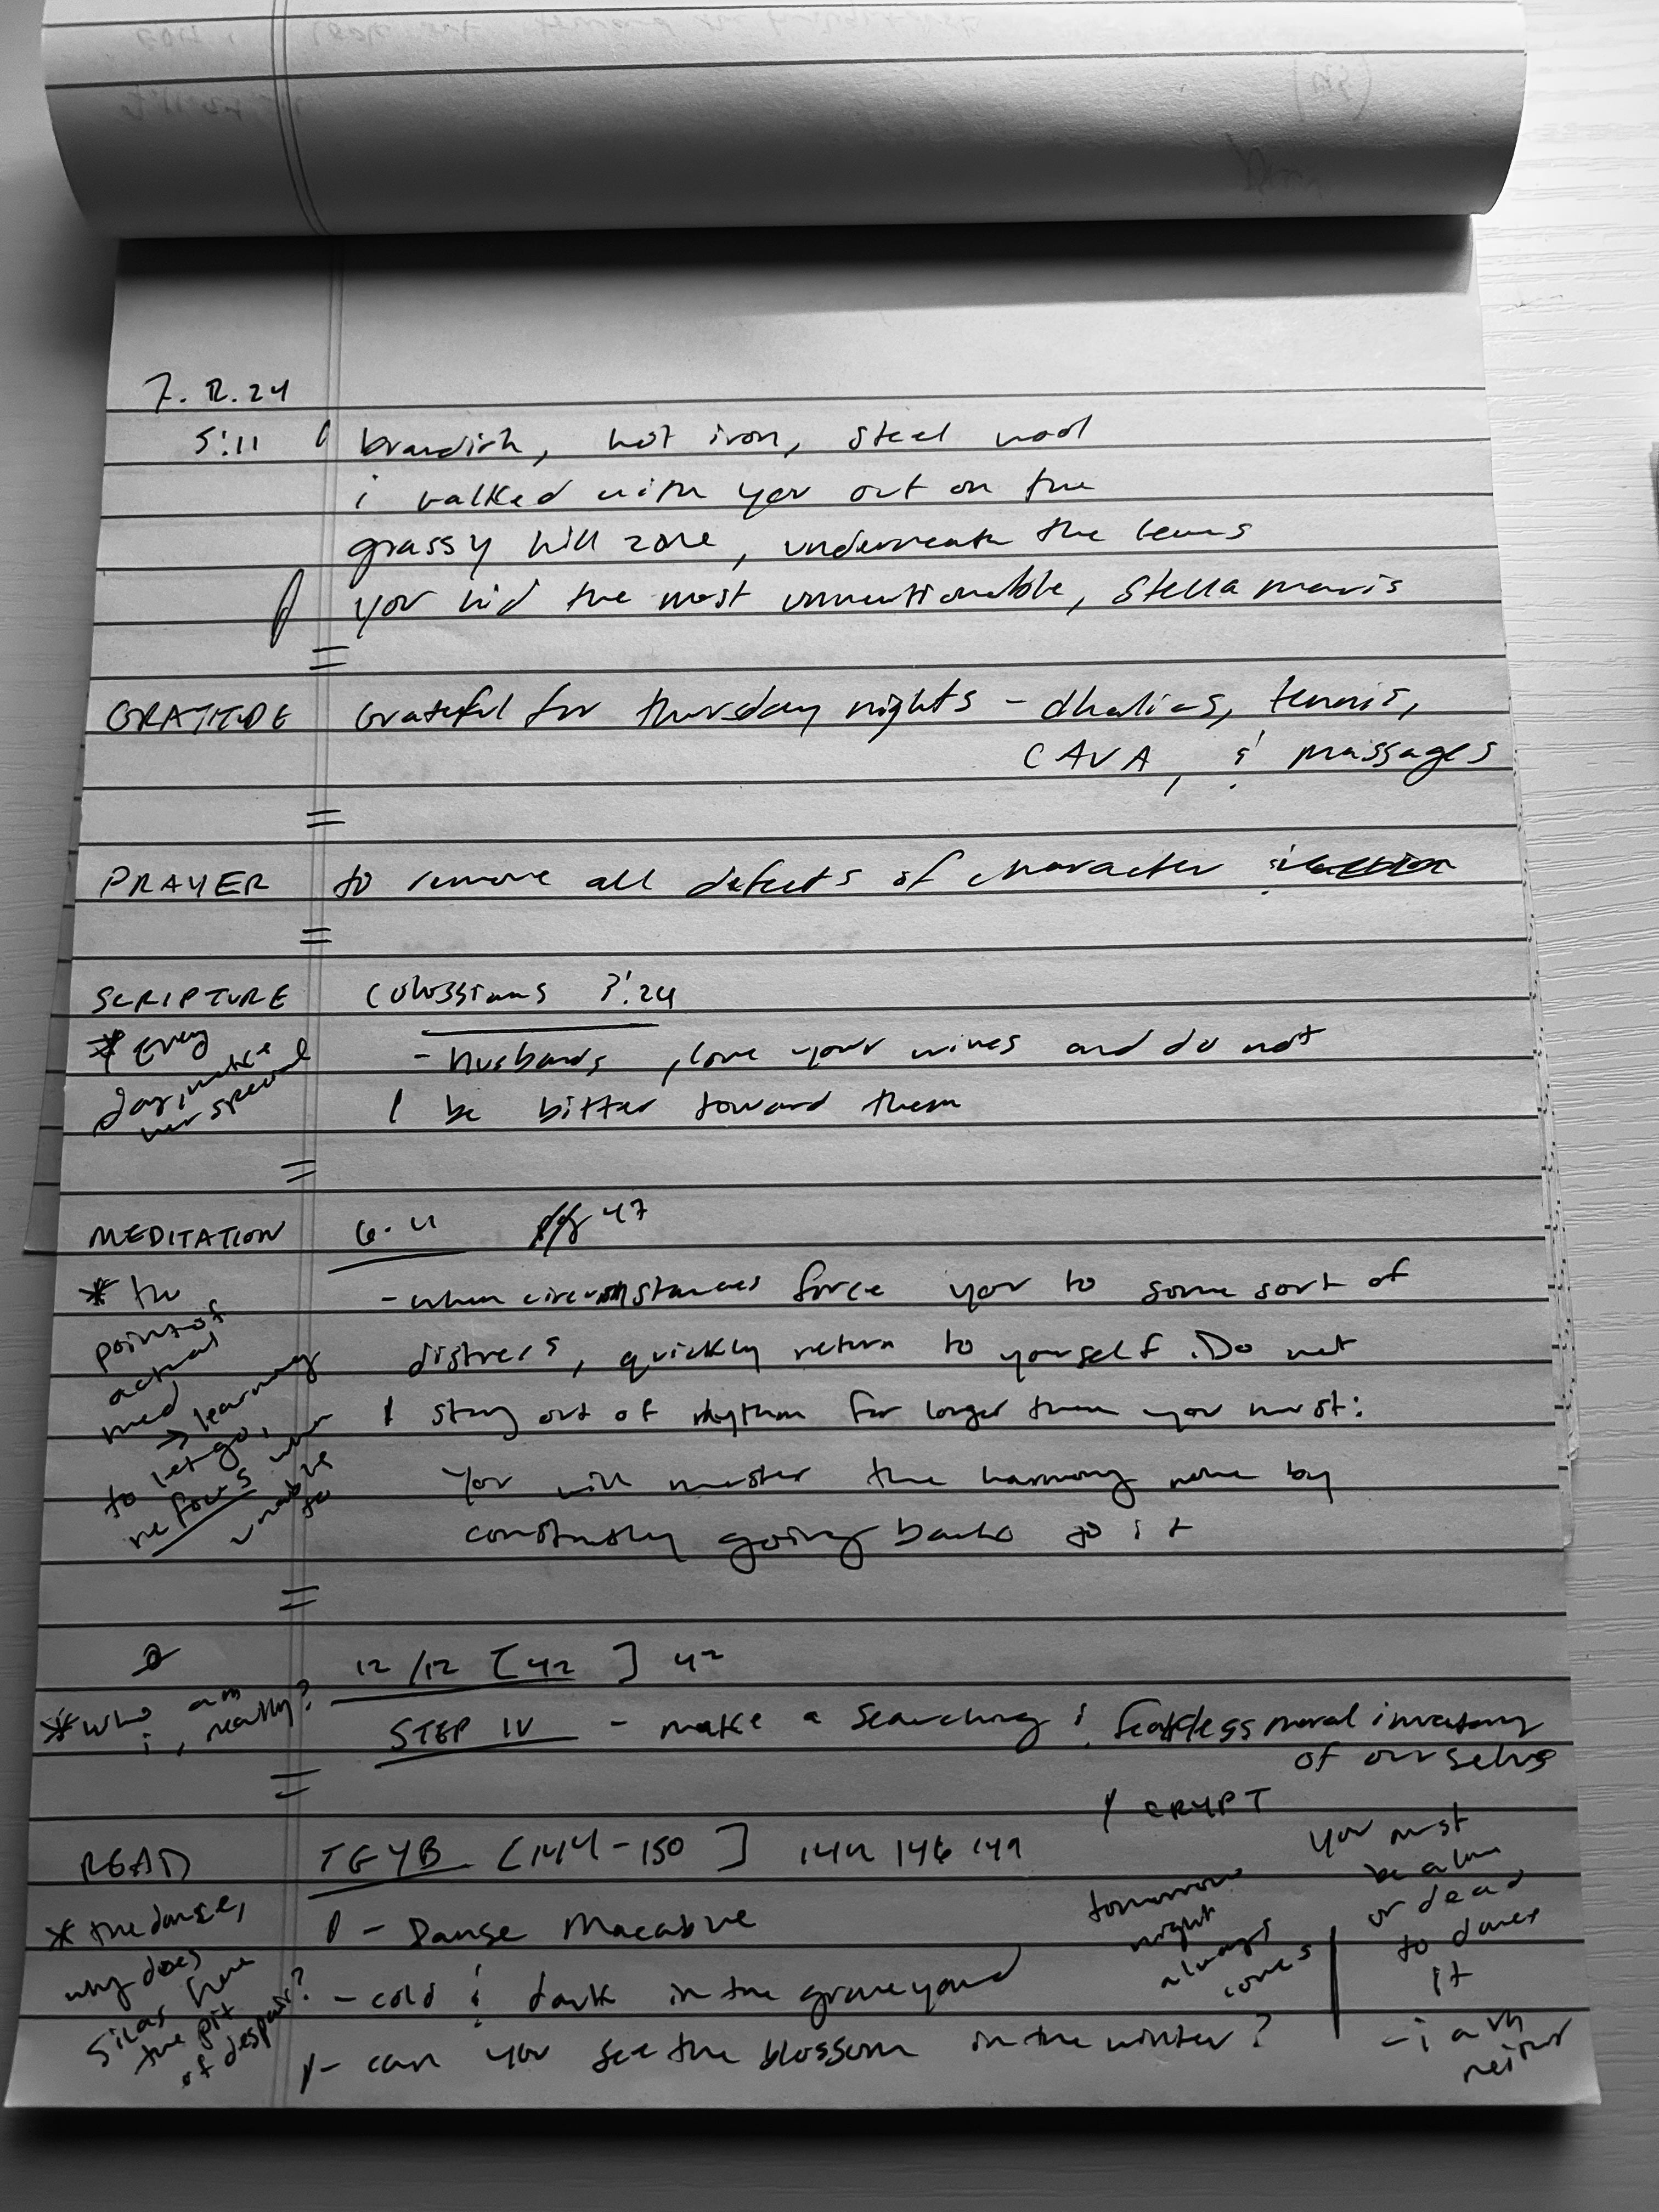 7.12.24
5:11 brandish, hot iron, steel wool
i walked with you out on the
grassy hill zone, underneath the
you hid the most unmentionable, stella maris
=
GRATITUDE grateful for thursday nights - dhalias, tennis,
CAVA, & massages
=
PRAYER to remove all defects of character
=
SCRIPTURE Colossians 3:24
- Husbands, love your wives and do not
be bitter toward them
* Every
day, make
her special
=
MEDITATION 6.11 pg 47
- when circumstances force you to some sort of
distress, quickly return to yourself. Do not
stay out of rhythm for longer than you must:
You will master the harmony more by
constantly going back to it
* the
point of
actual
med
→ learning
to let go,
refocus when
unable
to
=
12/12 [42 ] 42
* who am
i, really?
STEP IV - make a searching & fearless moral inventory
of ourselves
=
READ TGYB [144-150] 144 146 149
CRYPT
- Danse Macabre
- cold & dark in the graveyard
- can you see the blossom in the winter?
* the dance,
why does
Silas have
the pit
of despair?
tomorrow
night
always
comes
you must
be alive
or dead
to dance
it
- i am
neither